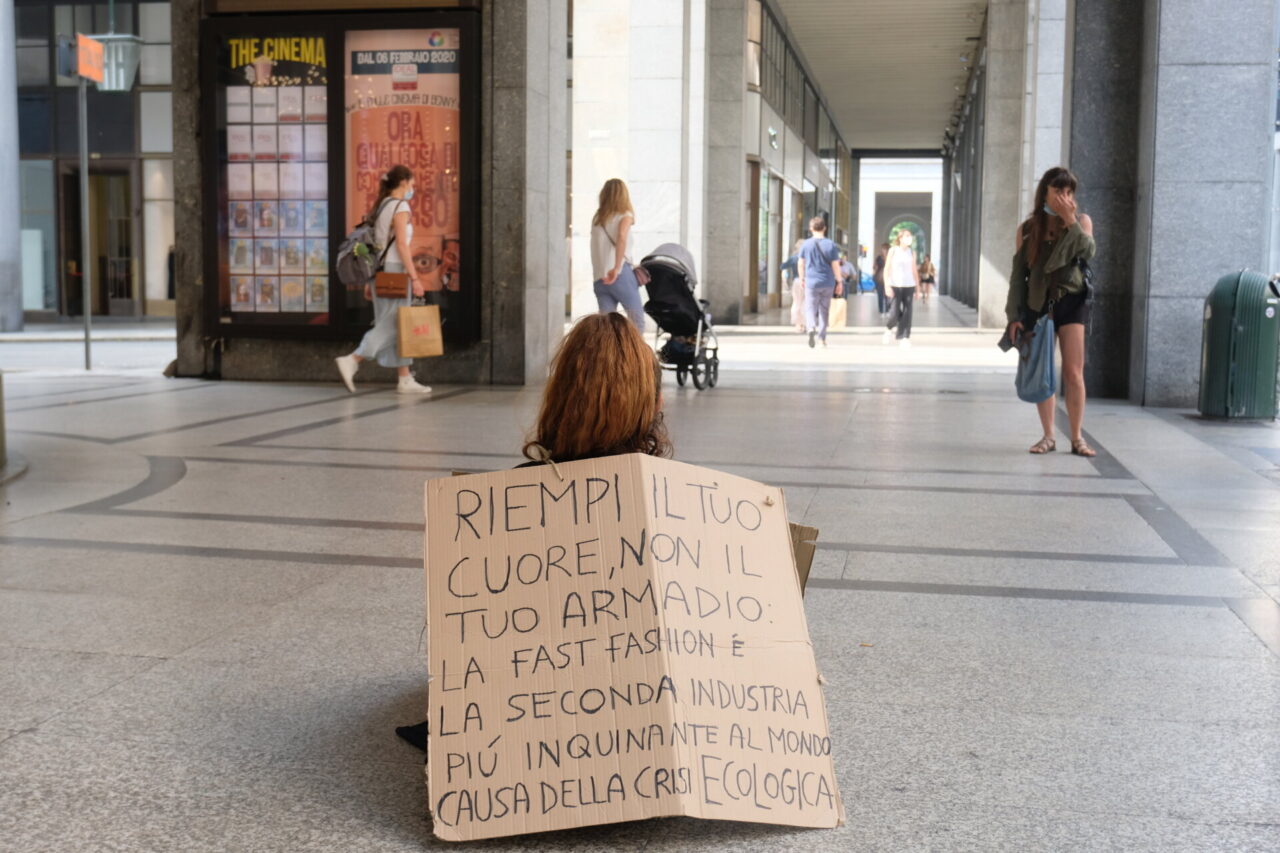 THE CINEMA
DAL 06 FEBBRAIO 2020
ORA
QUALCOSA DI
H&M
RIEMPI IL TUO
CUORE, NON IL
TUO ARMADIO:
LA FAST FASHION É
LA SECONDA INDUSTRIA
PIÚ INQUINANTE AL MONDO
CAUSA DELLA CRISI ECOLOGICA